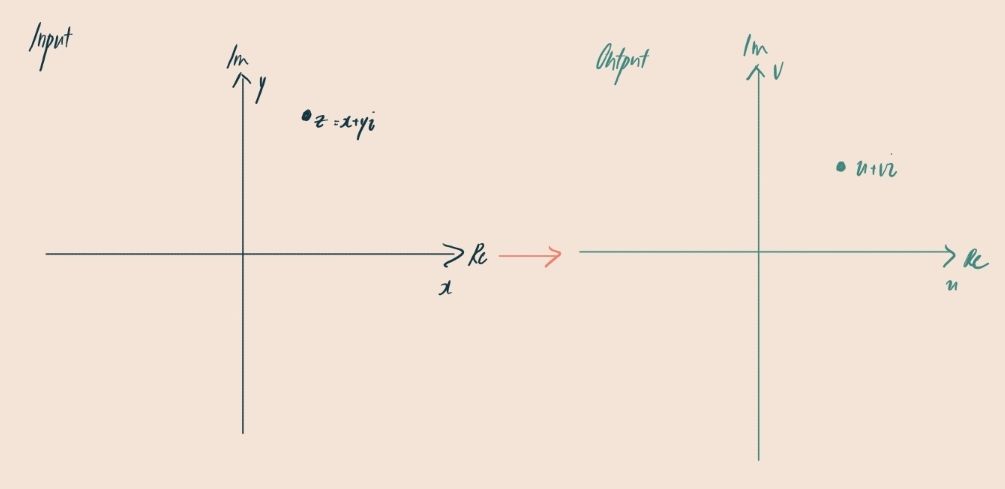 Input
Im
y
z = x+yi
Re
x
Output
Im
v
u+vi
Re
u